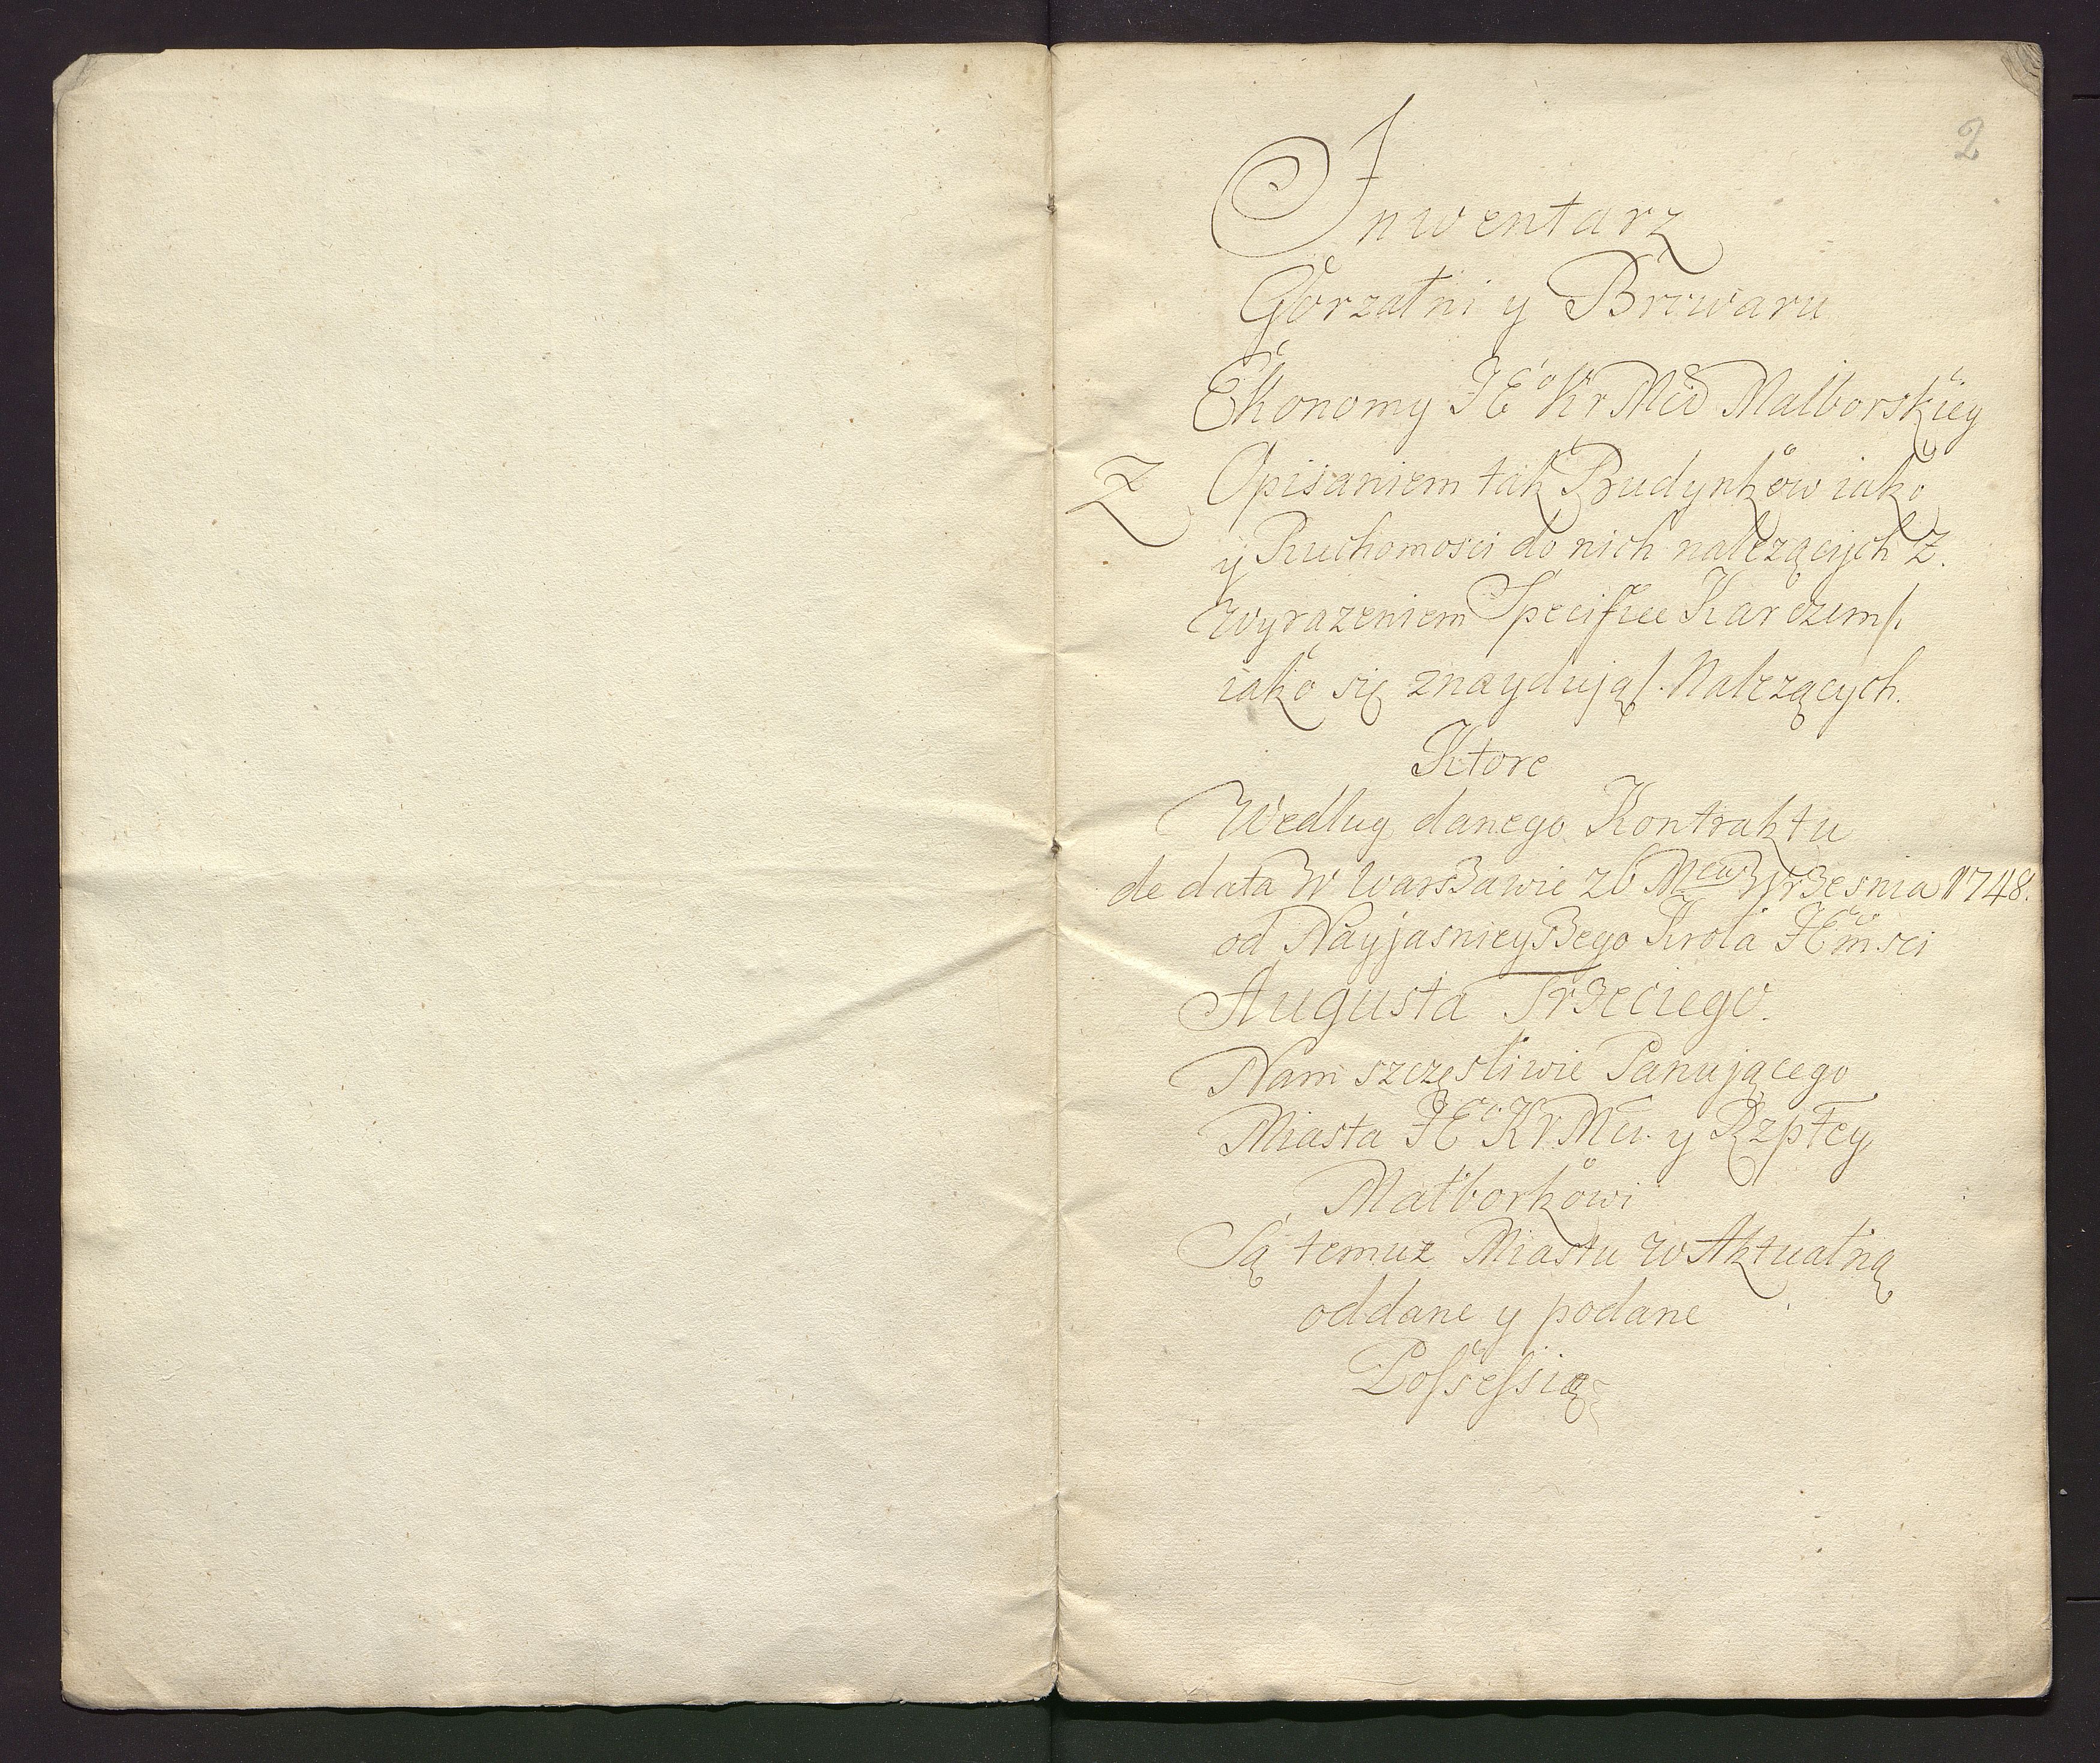 2
Inwentarz
Gorzałni y Browaru
Ekonomy JE° Kr Mci Malborskiey
Z Opisaniem tak Budynkow iako
y Ruchomosci do nich należących z.
wyrazeniem Specifice Karczm/.
iako się znaydują/. Należących.
Ktore
Wedlug danego Kontraktu
de data W Warszawie 26 Mca Wrzesnia 1748.
od Nayjasnieyszego Krola JE° msci
Augusta Trzeciego.
Nam szczęsliwie Panującego
Miasta JE° Kr Mci. y Rzpłey
Malborkowi
Są temuz Miastu w Aktualną
oddane y podane
Possessią